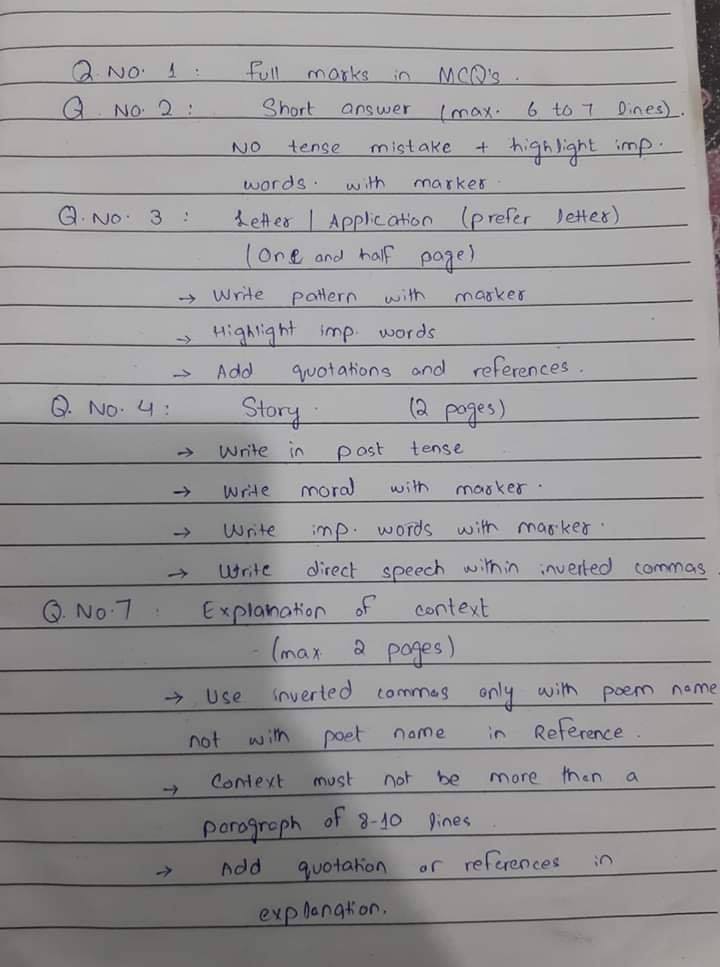 Q. No. 1 : Full marks in MCQ's.
Q. No. 2 : Short answer (max. 6 to 7 lines).
No tense mistake + highlight imp.
words. with marker.
Q. No. 3 : Letter | Application (prefer letter)
(One and half page)
→ Write pattern with marker
→ Highlight imp. words
→ Add quotations and references.
Q. No. 4 : Story. (2 pages)
→ Write in past tense
→ Write moral with marker.
→ Write imp. words with marker.
→ Write direct speech within inverted commas
Q. No. 7 : Explanation of context
(max 2 pages)
→ Use inverted commas only with poem name
not with poet name in Reference.
→ Context must not be more then a
paragraph of 8-10 lines
→ Add quotation or references in
explanation.